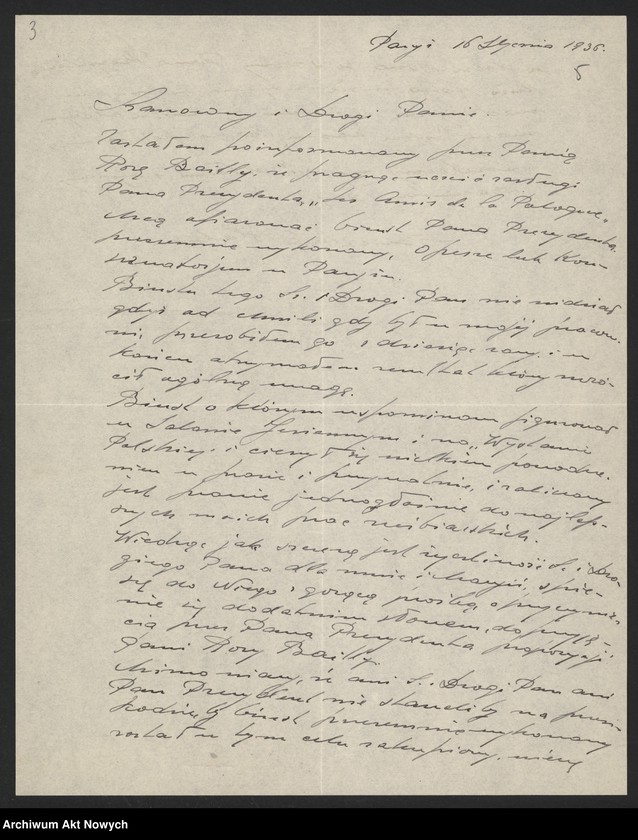 3
Paryż 16 Stycznia 1936.
5
Szanowny i Drogi Panie
Zostałem poinformowany przez Panią
Rosę Bailly, że pragnąc uczcić zasługi
Pana Prezydenta, "Les Amis de la Pologne"
chcą ofiarować biust Pana Prezydenta,
przezemnie wykonany, Operze lub Kon-
serwatorjum w Paryżu.
Biustu tego Sz. i Drogi Pan nie widział
gdyż od chwili gdy był w mojej pracow-
ni, przerobiłem go z dziesięć razy, i w
końcu otrzymałem rezultat który zwró-
cił ogólną uwagę.
Biust o którym wspominam figurował
w Salonie Jesiennym i na "Wystawie
Polskiej" i cieszył się wielkiem powodze-
niem w prasie i prywatnie, i zaliczony
jest prawie jednogłośnie do najlep-
szych moich prac rzeźbiarskich.
Wiedząc jak szczerą jest życzliwość Sz. i Dro-
giego Pana dla mnie i Maryli, śpie-
szę do Niego z gorącą prośbą, o przyczynie-
nie się dodatnim słowem, do przyję-
cia przez Pana Prezydenta propozycji
Pani Rosy Bailly.
Mimo mian, że ani Sz. i Drogi Pan ani
Pan Prezydent nie stanęliby na przesz-
kodzie, by biust przezemnie wykonany
został w tym celu zakupiony, wierzę
Archiwum Akt Nowych